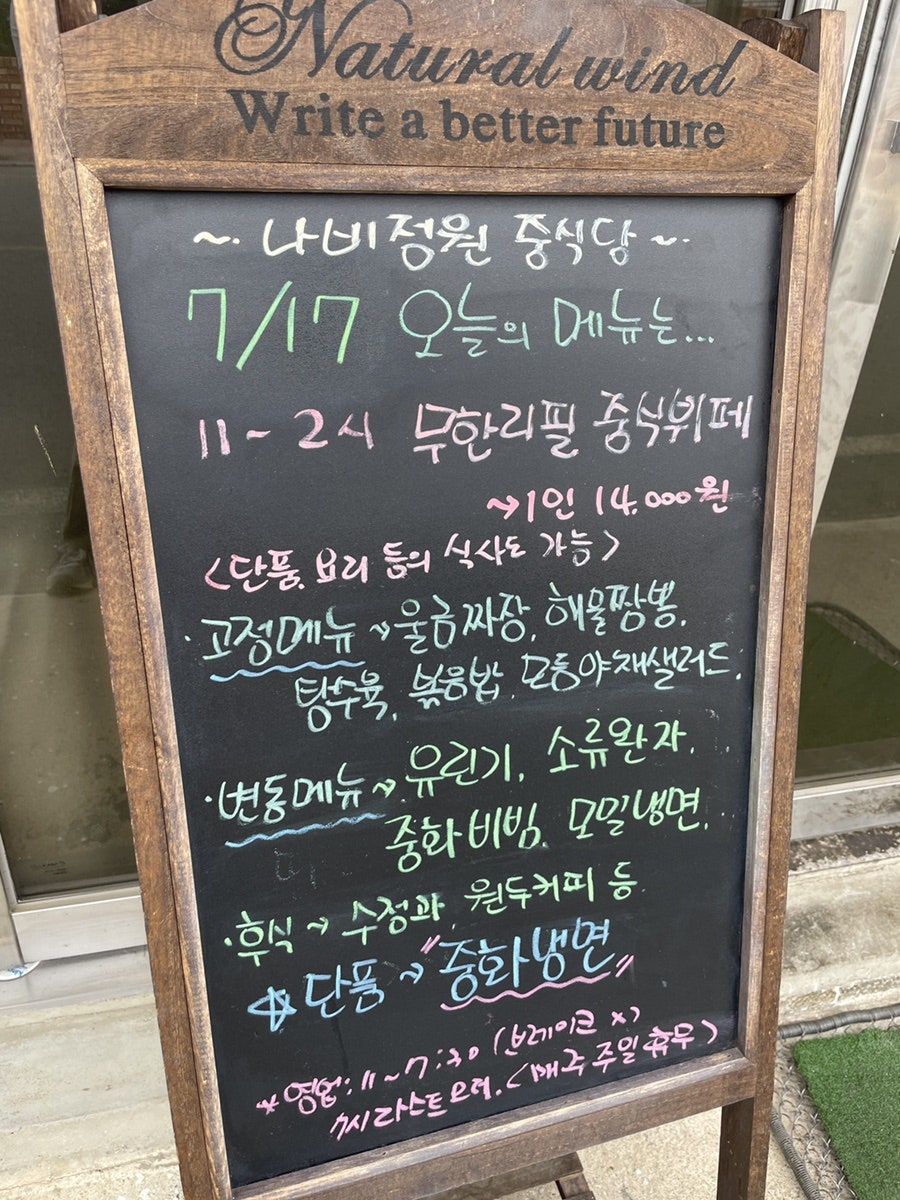 Natural wind
Write a better future
~· 나비정원 중식당 ~·
7/17 오늘의 메뉴는...
11 ~ 2시 무한리필 중식뷔페
→1인 14,000원
<단품, 요리 등의 식사도 가능>
· 고정메뉴 → 울금짜장, 해물짬뽕,
탕수육, 볶음밥, 모듬야채샐러드,
· 변동메뉴 → 유린기, 소류완자,
중화비빔, 모밀냉면,
· 후식 → 수정과, 원두커피 등
☆ 단품 → "중화냉면"
* 영업: 11 ~ 7:30 (브레이크 x)
7시 라스트오더, <매주 주일 휴무>